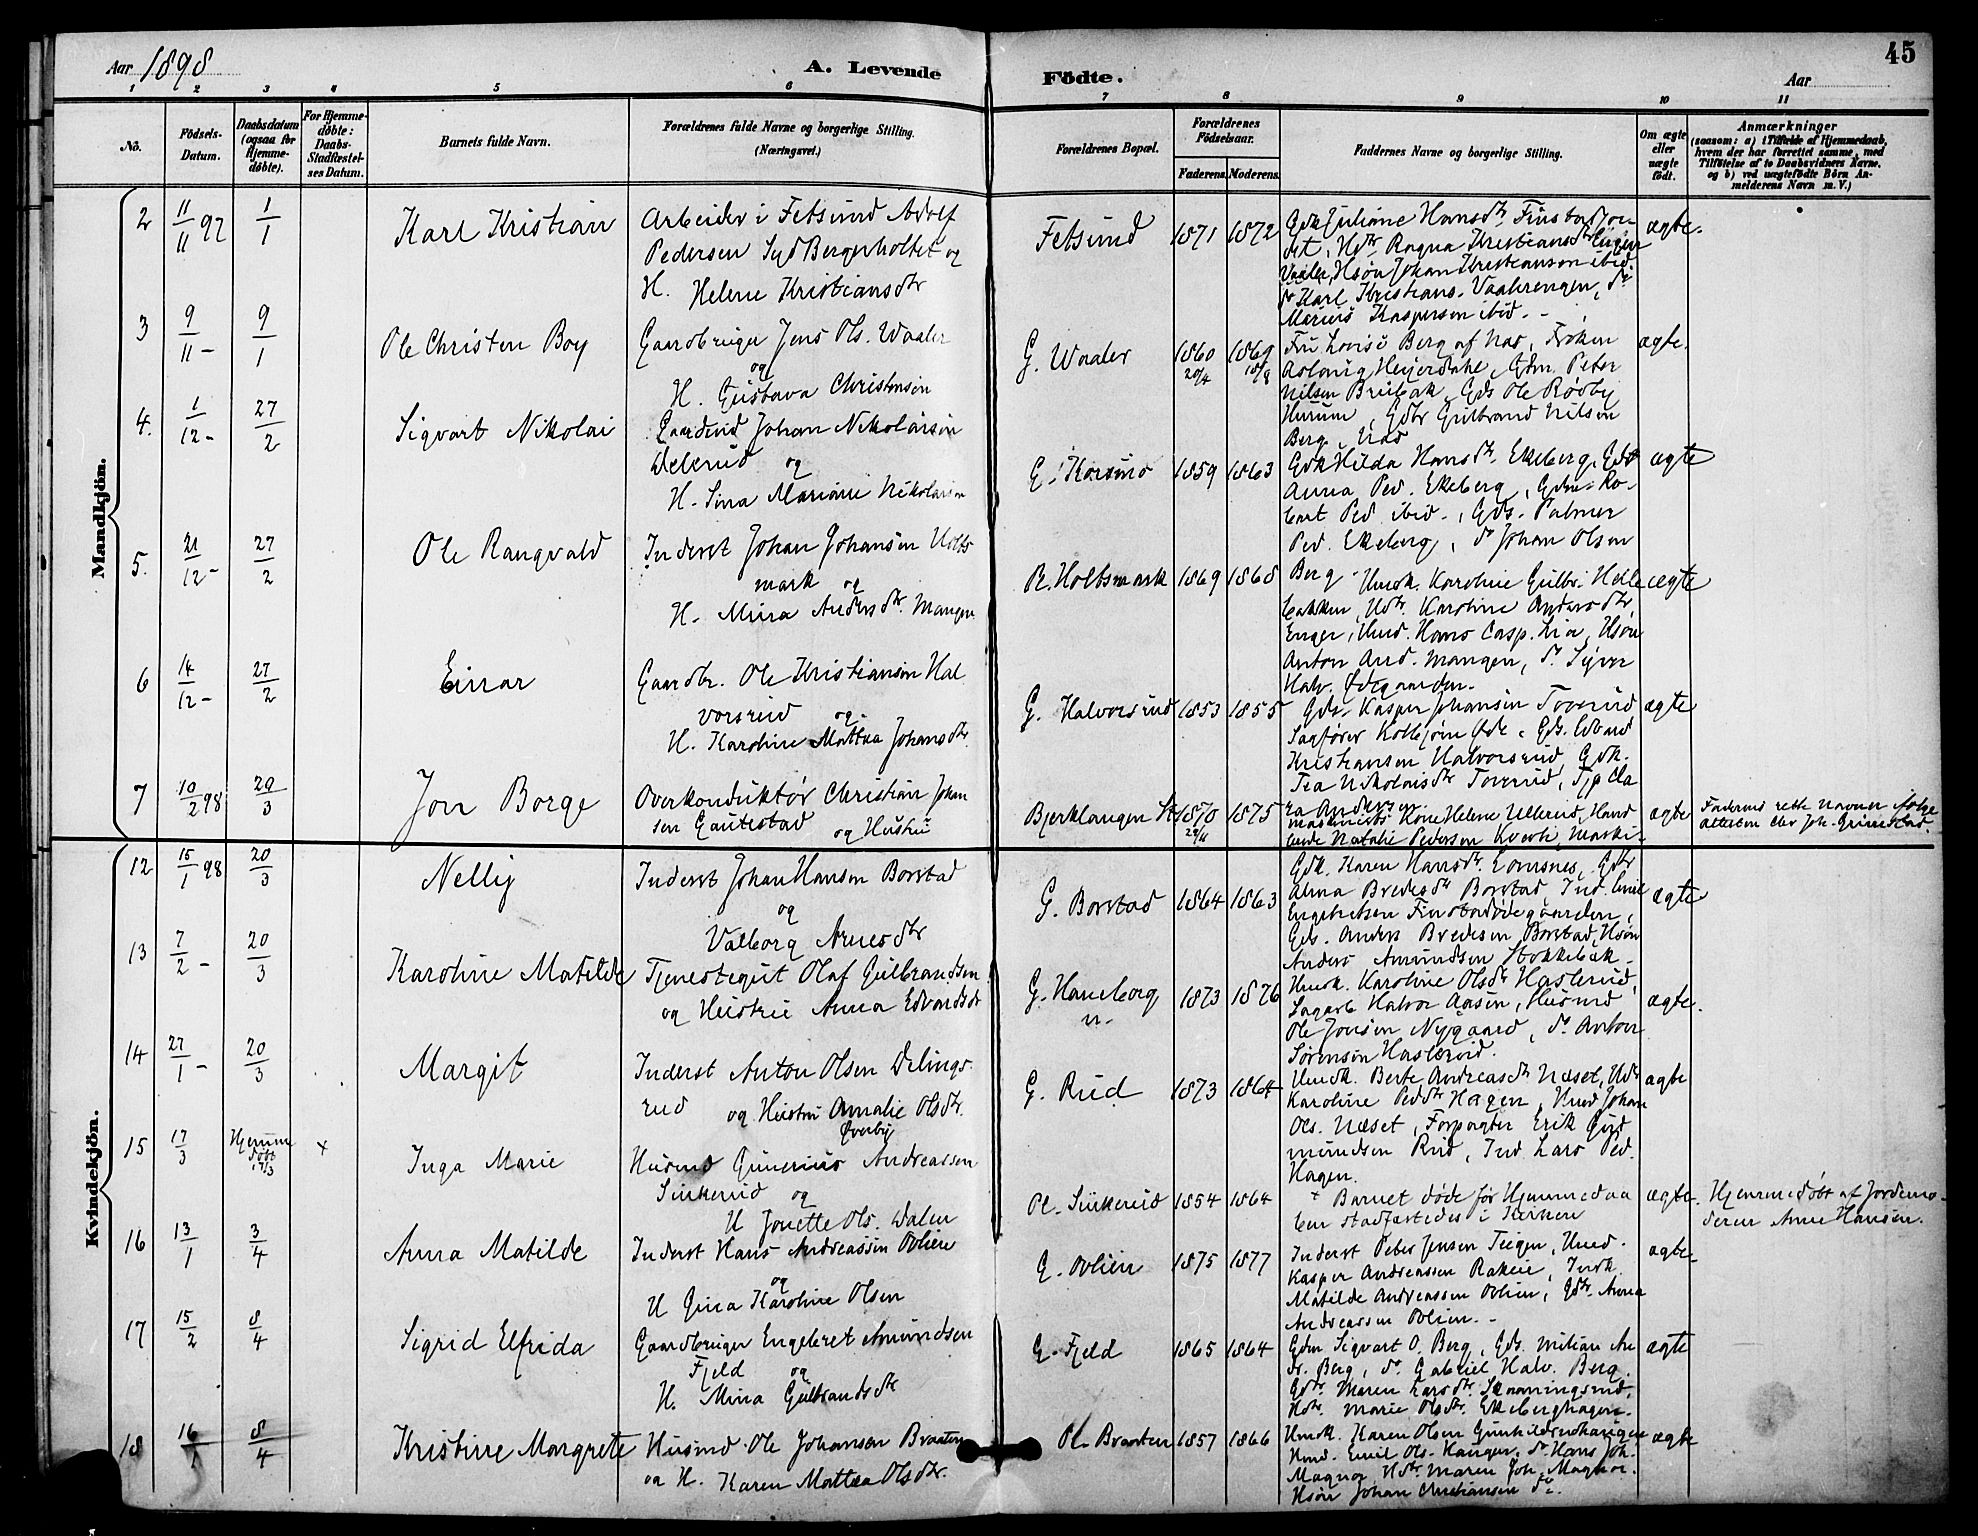 Aar 1898
A. Levende Födte.
Aar
45
1 2 3 4 5 6 7 8 9 10 11
No.
Födsels-Datum.
Daabsdatum (ogsaa for Hjemmedøbte).
For Hjemmedøbte: Daabs-Stadfæstelses Datum.
Barnets fulde Navn.
Forældrenes fulde Navne og borgerlige Stilling.
(Næringsvei.)
Forældrenes Bopæl.
Forældrenes Födselsaar.
Faderens. Moderens.
Faddernes Navne og borgerlige Stilling.
Om ægte eller uægte födt.
Anmærkninger
(saasom: a) i Tilfælde af Hjemmedaab, hvem der har forrettet samme, med Tilföielse af to Daabsvidners Navne, og b) ved uægtefödte Börn Anmelderens Navn m. V.)
Mandkjön.
2 11/11 97 1/1 Karl Kristian
Arbeider i Fetsund Adolf
Pedersen Syd Bergerholtet og
H. Helene Kristiansdtr
Fetsund 1871 1872
Gdk Juliane Hansdtr. Finstadjor
det, Hdtr. Ragna Kristiansdtr Enger
Vaaler, Hsøn Johan Kristiansen ibid.
do Karl Kristians. Vaalrengen, do
Marius Kaspersen ibid.
ægte.
3 9/11 – 9/1 Ole Christen Boy
Gaardbruger Jens Ols. Waaler
og
H. Gustava Christensen
G. Waaler 1860 20/4 1869 18/8
Fru Lovise Berg af Nas, Frøken
Aslaug Heyerdahl, Gdm. Peter
Nilsen Brubak, Gds Ole Rødby
Hurum, Gdbr Gulbrand Nilsen
Berg, Nas
ægte.
4. 1/12 – 27/2 Sigvart Nikolai
Gaardmd Johan Nikolaisen
Delerud og
H. Lina Mariane Nikolaisen
G. Korsmo 1859 1863
Gdk Hilda Hansdtr. Ekeberg, Gdtr
Anna Ped. Ekeberg, Gdm. Ro-
bart Ped ibid., Gds. Palmer
Ped. Ekeberg, do Johan Olsen
Berg
ægte
5. 21/12 – 27/2 Ole Rangvald
Inderst Johan Johansen Holts
mark og
H. Mina Andersdtr. Mangen
Pl. Holtsmark 1869 1868
Hmdk. Karoline Gulbr. Helle
bakken, Hdtr. Karoline Andersdtr.
Enger, Hmd. Hans Casp. Lia, Hsøn
Anton And. Mangen, do Syver
Halv. Ødegaarden.
ægte
6 14/12 – 27/2 Einar
Gaardbr. Ole Kristiansen Hal
vorsrud og
H. Karoline Mattea Johansdtr.
G. Halvorsrud 1853 1855
Gdr. Kasper Johansen Toverud
Sagfører Kolbjørn Øde, Gds. Edvard
Kristiansen Halvorsrud, Gdk.
Tea Nikolaisdtr Toverud, Tjp Cla
ra Andersen.
ægte
7 10/2 98 20/3 Jon Borge
Overkonduktør Christian Johan
sen Gautestad og Hustru
Bjerklangen St 1870 29/11 1875
Maskinists Kone Helene Ullerud, Hand
lende Natalie Pedersen Kverk, Maski-
ægte
Faderens rette Navn er ifølge
Attesten Chr Joh. Grimstad.
Kvindekjön.
12 15/1 98 20/3 Nellij
Inderst Johan Hansen Borstad
og
Valborg Arnesdtr
G. Borstad 1864 1863
Gdk. Karen Hansdtr. Lomsnes, Gdtr
Alma Bredesdtr Borstad, Ind. Emil
Engebretsen Finstadødegaarden,
Gds. Anders Bredesen Borstad, Hsøn
Anders Amundsen Stokkebæk
ægte
13 7/2 – 20/3 Karoline Matilde
Tjenestegut Olaf Gulbrandsen
og Hustru Anna Edvardsdtr
G. Haneborg
n. 1873 1876
Hmdk. Karoline Olsdtr Haslerud,
Sagarb Halvor Aasen, Husmd
Ole Jonsen Nygaard, do Anton
Sørensen Haslerud.
ægte.
14 27/1 – 20/3 Margit
Inderst Anton Olsen Delings-
rud og Hustru Amalie Olsdtr.
Øverby
G. Rud 1873 1864
Hmdk. Berte Andreasdtr Næset, Hdtr
Karoline Peddtr Hagen, Hmd Johan
Ols. Næset, Forpagter Erik Gud
mundsen Rud, Ind Lars Ped.
Hagen.
ægte
15 17/3 Hjemme døbt 17/3 + Inga Marie
Husmd Gunerius Andreassen
Sinkerud og
H Jonette Ols. Dalen
Pl. Sinkerud 1854 1864
+ Barnet døde før Hjemmedaa
ben stadfæstedes i Kirken
ægte.
Hjemmedøbt af Jordemo-
deren Anne Hansen.
16 13/1 3/4 Anna Matilde
Inderst Hans Andreassen Ovlien
og
H Gina Karoline Olsen
G. Ovlien 1875 1877
Inderst Peter Jensen Teigen, Hmd.
Kasper Andreassen Rakeie, Indk
Matilde Andreassen Ovlien, Gdtr. Anna
Andreassen Ovlien.
ægte.
17 15/2 8/4 Sigrid Elfrida
Gaardbruger Engebret Amundsen
Fjeld og
H. Mina Gulbrandsdtr
G. Fjeld 1865 1864
Gdm Sigvart O. Berg, Gds. Milian An
dr. Berg, do Gabriel Halv. Berg.
Gdtr. Maren Larsdtr. Sæmmingsrud,
Hdtr. Marie Olsdtr. Ekeberghagen.
ægte
18 16/1 8/4 Kristine Margrete
Husmd. Ole Johansen Braaten
og H. Karen Mattea Olsdtr.
Pl. Braaten 1857 1866
Hmdk. Karen Olsen Gunhildrudhaugen
Hmd. Emil Ols. Haugen, do Hans Joh.
Magnor, Hdtr. Maren Joh. Magnor.
Hsøn Johan Christiansen do.
ægte